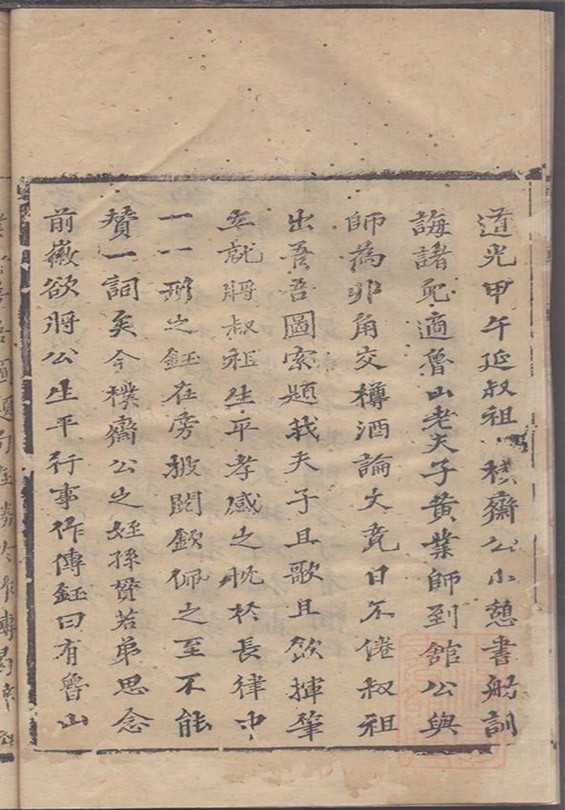 道光甲午延叔祖樸齋公小憩書船訓
誨諸兒適魯山老夫子黃業師到館公與
師為丱角交樽酒論文竟日不倦叔祖
出吾吾圖索題我夫子且歌且飲揮筆
立就將叔祖生平孝感之忱於長律中
一一形之鈺在旁披閱欽佩之至不能
贊一詞矣今樸齋公之姪孫贊若弟思念
前徽欲將公生平行事作傳鈺曰有魯山